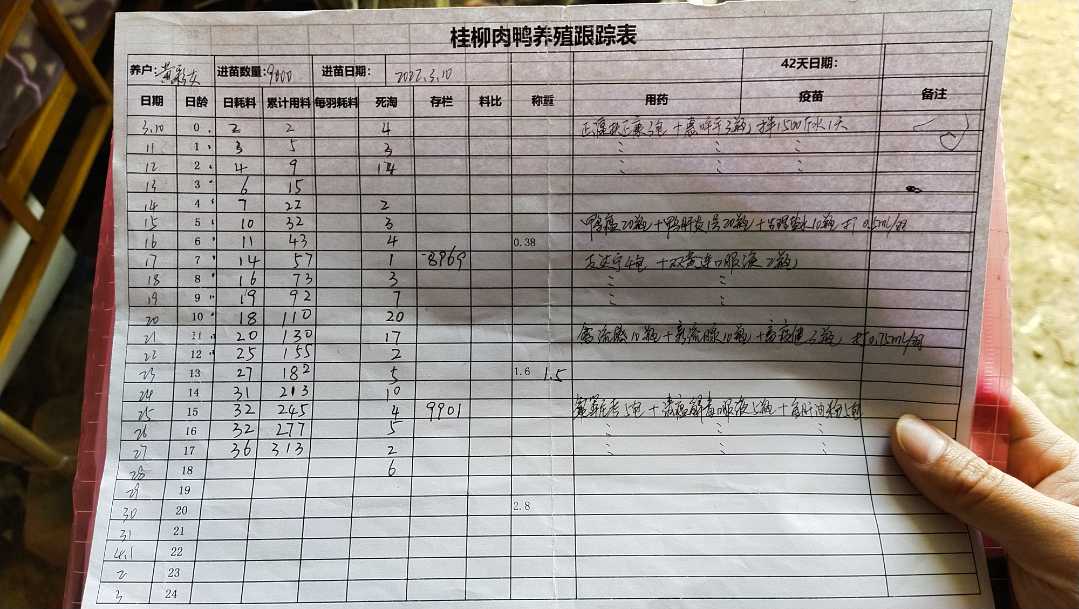 桂柳肉鸭养殖跟踪表
养户: 进苗数量:9000 进苗日期: 2022.3.10 42天日期:
日期 日龄 日耗料 累计用料 每羽耗料 死淘 存栏 料比 称重 用药 疫苗 备注
3.10 0 2 2 4 3包 + 3瓶, 拌1500斤水1天
11 1 3 5 3 : : :
12 2 4 9 14 : : :
13 3 6 15
14 4 7 22 2
15 5 10 32 3 20瓶 + 鸭肝炎 20瓶 + 10瓶 打 0.5ml/羽
16 6 11 43 4 0.38
17 7 14 57 1 8969 4包 + 双黄连口服液 2瓶,
18 8 16 73 3 : :
19 9 19 92 7 : :
20 10 18 110 20
21 11 20 130 17 禽流感10瓶 + 10瓶 + 3瓶, 打0.75ml/羽
22 12 25 155 2
23 13 27 182 5 1.6 1.5
24 14 31 213 10
25 15 32 245 4 9901 5包 + 清瘟解毒口服液5瓶 + 鱼肝油粉5包
26 16 32 277 5 : : :
27 17 36 313 2 : : :
28 18 6
29 19
30 20 2.8
31 21
4.1 22
2 23
3 24